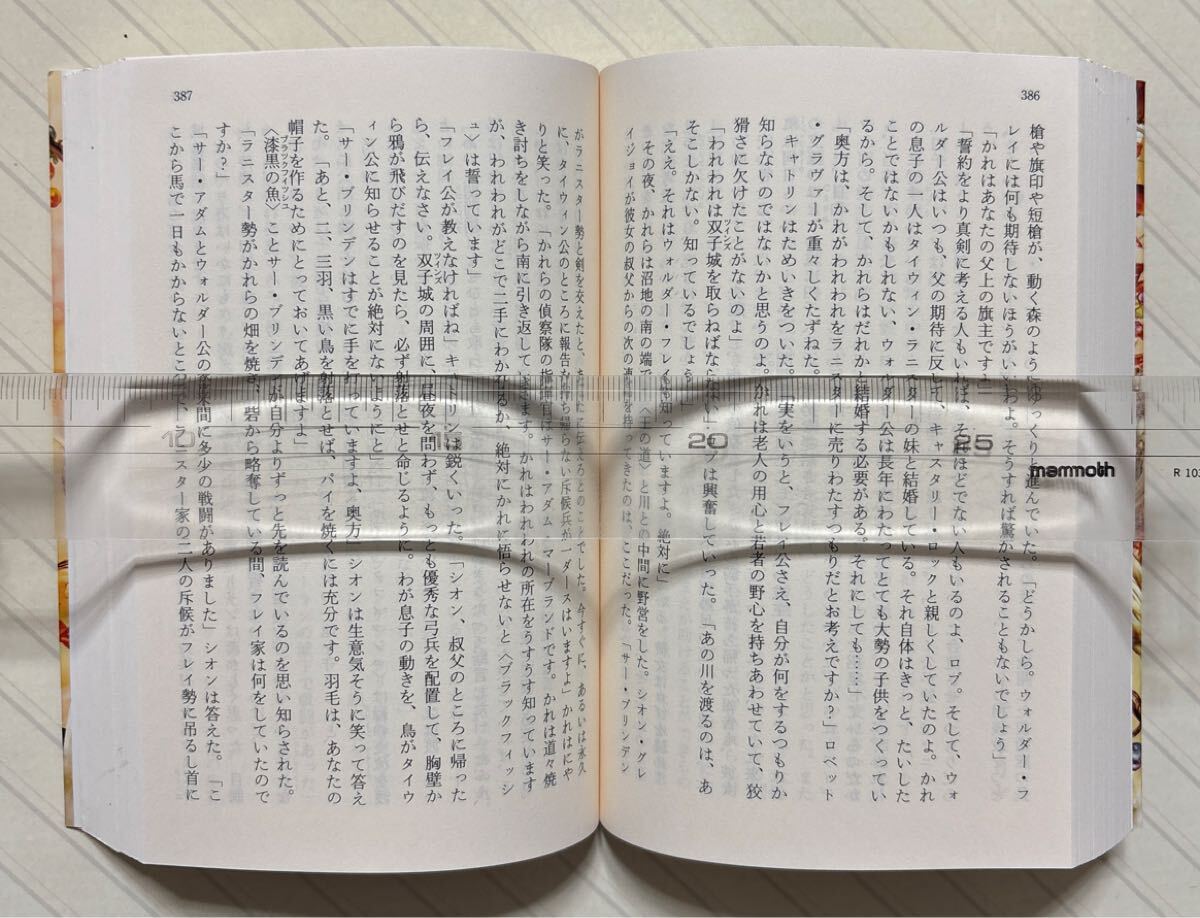 386
槍や旗印や短槍が、動く森のようにゆっくりと進んでいた。「どうかしら。ウォルダー・フ
レイには何も期待しないほうがいいわよ。そうすれば驚かされることもないでしょう」
「かれはあなたの父上の旗主です」
「誓約をより真剣に考える人もいれば、それほどでない人もいるのよ、ロブ。そして、ウォ
ルダー公はいつも、父の期待に反して、キャスタリー・ロックと親しくしていたのよ。かれ
の息子の一人はタイウィン・ラニスターの妹と結婚している。それ自体はきっと、たいした
ことではないかもしれない、ウォルダー公は長年にわたってとても大勢の子供をつくってい
るから。そして、かれらはだれかと結婚する必要がある。それにしても……」
「奥方は、かれがわれわれをラニスターに売りわたすつもりだとお考えですか?」ロベット
・グラヴァーが重々しくたずねた。
キャトリンはためいきをついた。「実をいうと、フレイ公さえ、自分が何をするつもりか
知らないのではないかと思うのよ。かれは老人の用心と若者の野心を持ちあわせていて、狡
猾さに欠けたことがないのよ」
「われわれは双子城を取らねばならない」ロブは興奮していった。「あの川を渡るのは、あ
ツインズ
そこしかない。知っているでしょう」
「ええ。それはウォルダー・フレイも知っていますよ。絶対に」
その夜、かれらは沼地の南の端で、〈王の道〉と川との中間に野営をした。シオン・グレ
イジョイが彼女の叔父からの次の連絡を持ってきたのは、ここだった。「サー・ブリンデン
387
がラニスター勢と剣を交えたと、あなたに伝えろとのことでした。今すぐに、あるいは永久
に、タイウィン公のところに報告を持ち帰らない斥候兵が一ダースはいますよ」かれはにや
りと笑った。「かれらの偵察隊の指揮官はサー・アダム・マーブランドです。かれは道々焼
き討ちをしながら南に引き返していきます。かれはわれわれの所在をうすうす知っています
が、われわれがどこで二手にわかれるか、絶対にかれに悟らせないと〈ブラックフィッシ
ュ〉は誓っています」
「フレイ公が教えなければね」キャトリンは鋭くいった。「シオン、叔父のところに帰った
ら、伝えなさい。双子城の周囲に、昼夜を問わず、もっとも優秀な弓兵を配置して、胸壁か
ツインズ
ら鴉が飛びだすのを見たら、必ず射落とせと命じるように。わが息子の動きを、鳥がタイウ
ィン公に知らせることが絶対にないようにと」
「サー・ブリンデンはすでに手を打っていますよ、奥方」シオンは生意気そうに笑って答え
た。「あと、二、三羽、黒い鳥を射落とせば、パイを焼くには充分です。羽毛は、あなたの
帽子を作るためにとっておいてあげますよ」
〈漆黒の魚〉ことサー・ブリンデンが自分よりずっと先を読んでいるのを思い知らされた。
ブラックフィッシュ
「ラニスター勢がかれらの畑を焼き、砦から略奪している間、フレイ家は何をしていたので
すか?」
「サー・アダムとウォルダー公の家来間に多少の戦闘がありました」シオンは答えた。「こ
こから馬で一日もかからないところで、ラニスター家の二人の斥候がフレイ勢に吊るし首に
10
15
20
25
mammoth
R 103